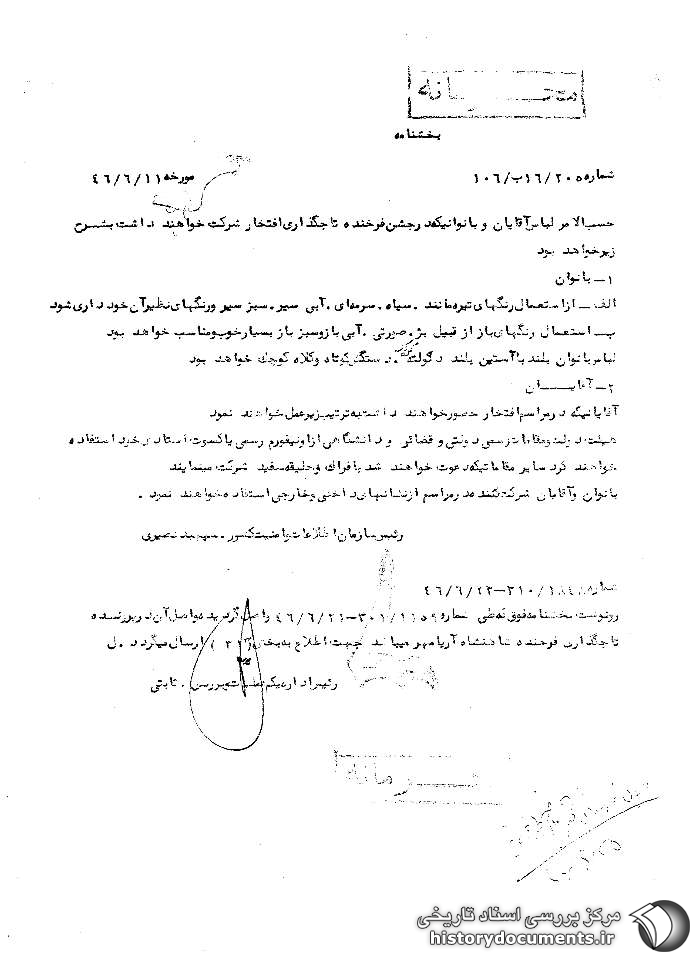 محرمانه
بخشنامه
شماره ۱۶/۲۰ب/۱۰۶ مورخه ۴۶/۶/۱۱
حسب الامر لباس آقایان و بانوانیکه در جشن فرخنده تاجگذاری افتخار شرکت خواهند داشت بشرح
زیر خواهد بود
۱ـ بانوان
الف ـ از استعمال رنگهای تیره مانند . سیاه . سرمه‌ای . آبی سیر . سبز سیر و رنگهای نظیر آن خودداری شود
ب ـ استعمال رنگهای باز از قبیل بژ . صورتی . آبی باز و سبز باز بسیار خوب و مناسب خواهد بود
لباس بانوان بلند با آستین بلند دکولته . دستکش کوتاه و کلاه کوچک خواهد بود
۲ـ آقایـــان
آقایانیکه در مراسم افتخار حضور خواهند داشت به ترتیب زیر عمل خواهند نمود
هیئت دولت و مقامات رسمی دولتی و قضائی و دانشگاهی از اونیفورم رسمی یا کسوت استادی خود استفاده
خواهند کرد سایر مقاماتیکه دعوت خواهند شد با فراک و جلیقه سفید شرکت مینمایند
بانوان و آقایان شرکت کننده در مراسم از نشانهای داخلی و خارجی استفاده خواهند نمود .
رئیس سازمان اطلاعات و امنیت کشور . سپهبد نصیری
شماره ۳۱۰/ ـ ۴۶/۶/۲۳
رونوشت بخشنامه فوق که طی شماره ۳۰۱/ ـ ۴۶/۶/۲۱ واصل گردیده و اصل آن در پرونده
تاجگذاری فرخنده شاهنشاه آریامهر میباشد جهت اطلاع به بخش ارسال میگردد . ل
رئیس اداره یکم عملیات و بررسی . ثابتی
محرمانه
مرکز بررسی اسناد تاریخی
historydocuments.ir